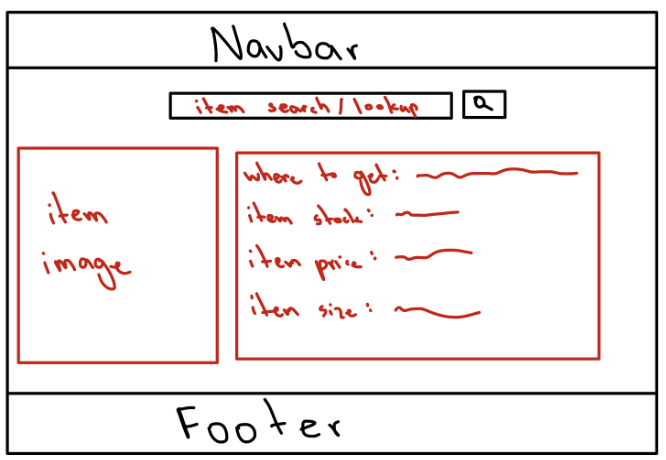 Navbar
item search/lookup
item
image
where to get:
item stock:
item price:
item size:
Footer